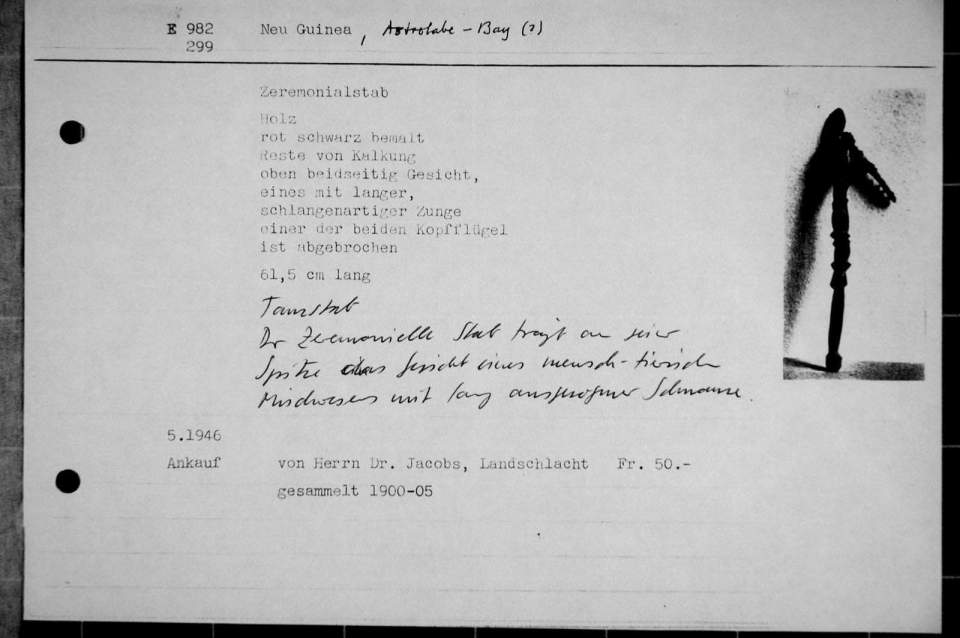 E 982 Neu Guinea, Astrolabe-Bay (?)
299
Zeremonialstab
Holz
rot schwarz bemalt
Reste von Kalkung
oben beidseitig Gesicht,
eines mit langer,
schlangenartiger Zunge
einer der beiden Kopfflügel
ist abgebrochen
61,5 cm lang
Tanzstab
Der Zeremonielle Stab trägt an seiner
Spitze das Gesicht eines mensch-tierisch
Mischwesens mit lang ausgezogener Schnauze.
5.1946
Ankauf von Herrn Dr. Jacobs, Landschlacht Fr. 50.-
gesammelt 1900-05